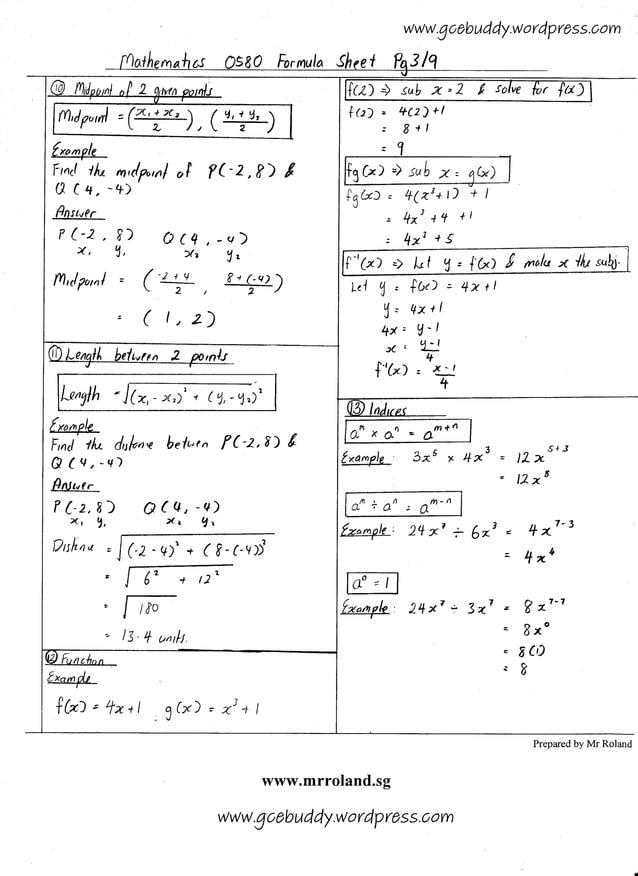 www.gcebuddy.wordpress.com
Mathematics 0580 Formula Sheet Pg3/9
⑩ Midpoint of 2 given points
Midpoint = ((x₁ + x₂)/2), ((y₁ + y₂)/2)
Example
Find the midpoint of P(-2,8) &
Q (4, -4)
Answer
P (-2, 8) Q (4, -4)
x₁ y₁ x₂ y₂
Midpoint = ((-2+4)/2, (8+(-4))/2)
= (1, 2)
⑪ Length between 2 points
Length = √((x₁ - x₂)² + (y₁ - y₂)²)
Example
Find the distane betwen P(-2,8) &
Q (4, -4)
Answer
P (-2, 8) Q (4, -4)
x₁ y₁ x₂ y₂
Distane = √((-2-4)² + (8-(-4))²)
= √(6² + 12²)
= √180
= 13.4 units.
⑫ Function
Example
f(x) = 4x+1 g(x) = x³+1
f(2) ⇒ sub x=2 & solve for f(x)
f(2) = 4(2)+1
= 8+1
= 9
fg(x) ⇒ sub x = g(x)
fg(x) = 4(x³+1) + 1
= 4x³ + 4 + 1
= 4x³ + 5
f⁻¹(x) ⇒ Let y = f(x) & make x the subj.
Let y = f(x) = 4x+1
y = 4x+1
4x = y-1
x = (y-1)/4
f⁻¹(x) = (x-1)/4
⑬ Indices
aᵐ × aⁿ = aᵐ⁺ⁿ
Example: 3x⁵ × 4x³ = 12x⁵⁺³
= 12x⁸
aᵐ ÷ aⁿ = aᵐ⁻ⁿ
Example: 24x⁷ ÷ 6x³ = 4x⁷⁻³
= 4x⁴
a⁰ = 1
Example: 24x⁷ ÷ 3x⁷ = 8x⁷⁻⁷
= 8x⁰
= 8(1)
= 8
Prepared by Mr Roland
www.mrroland.sg
www.gcebuddy.wordpress.com